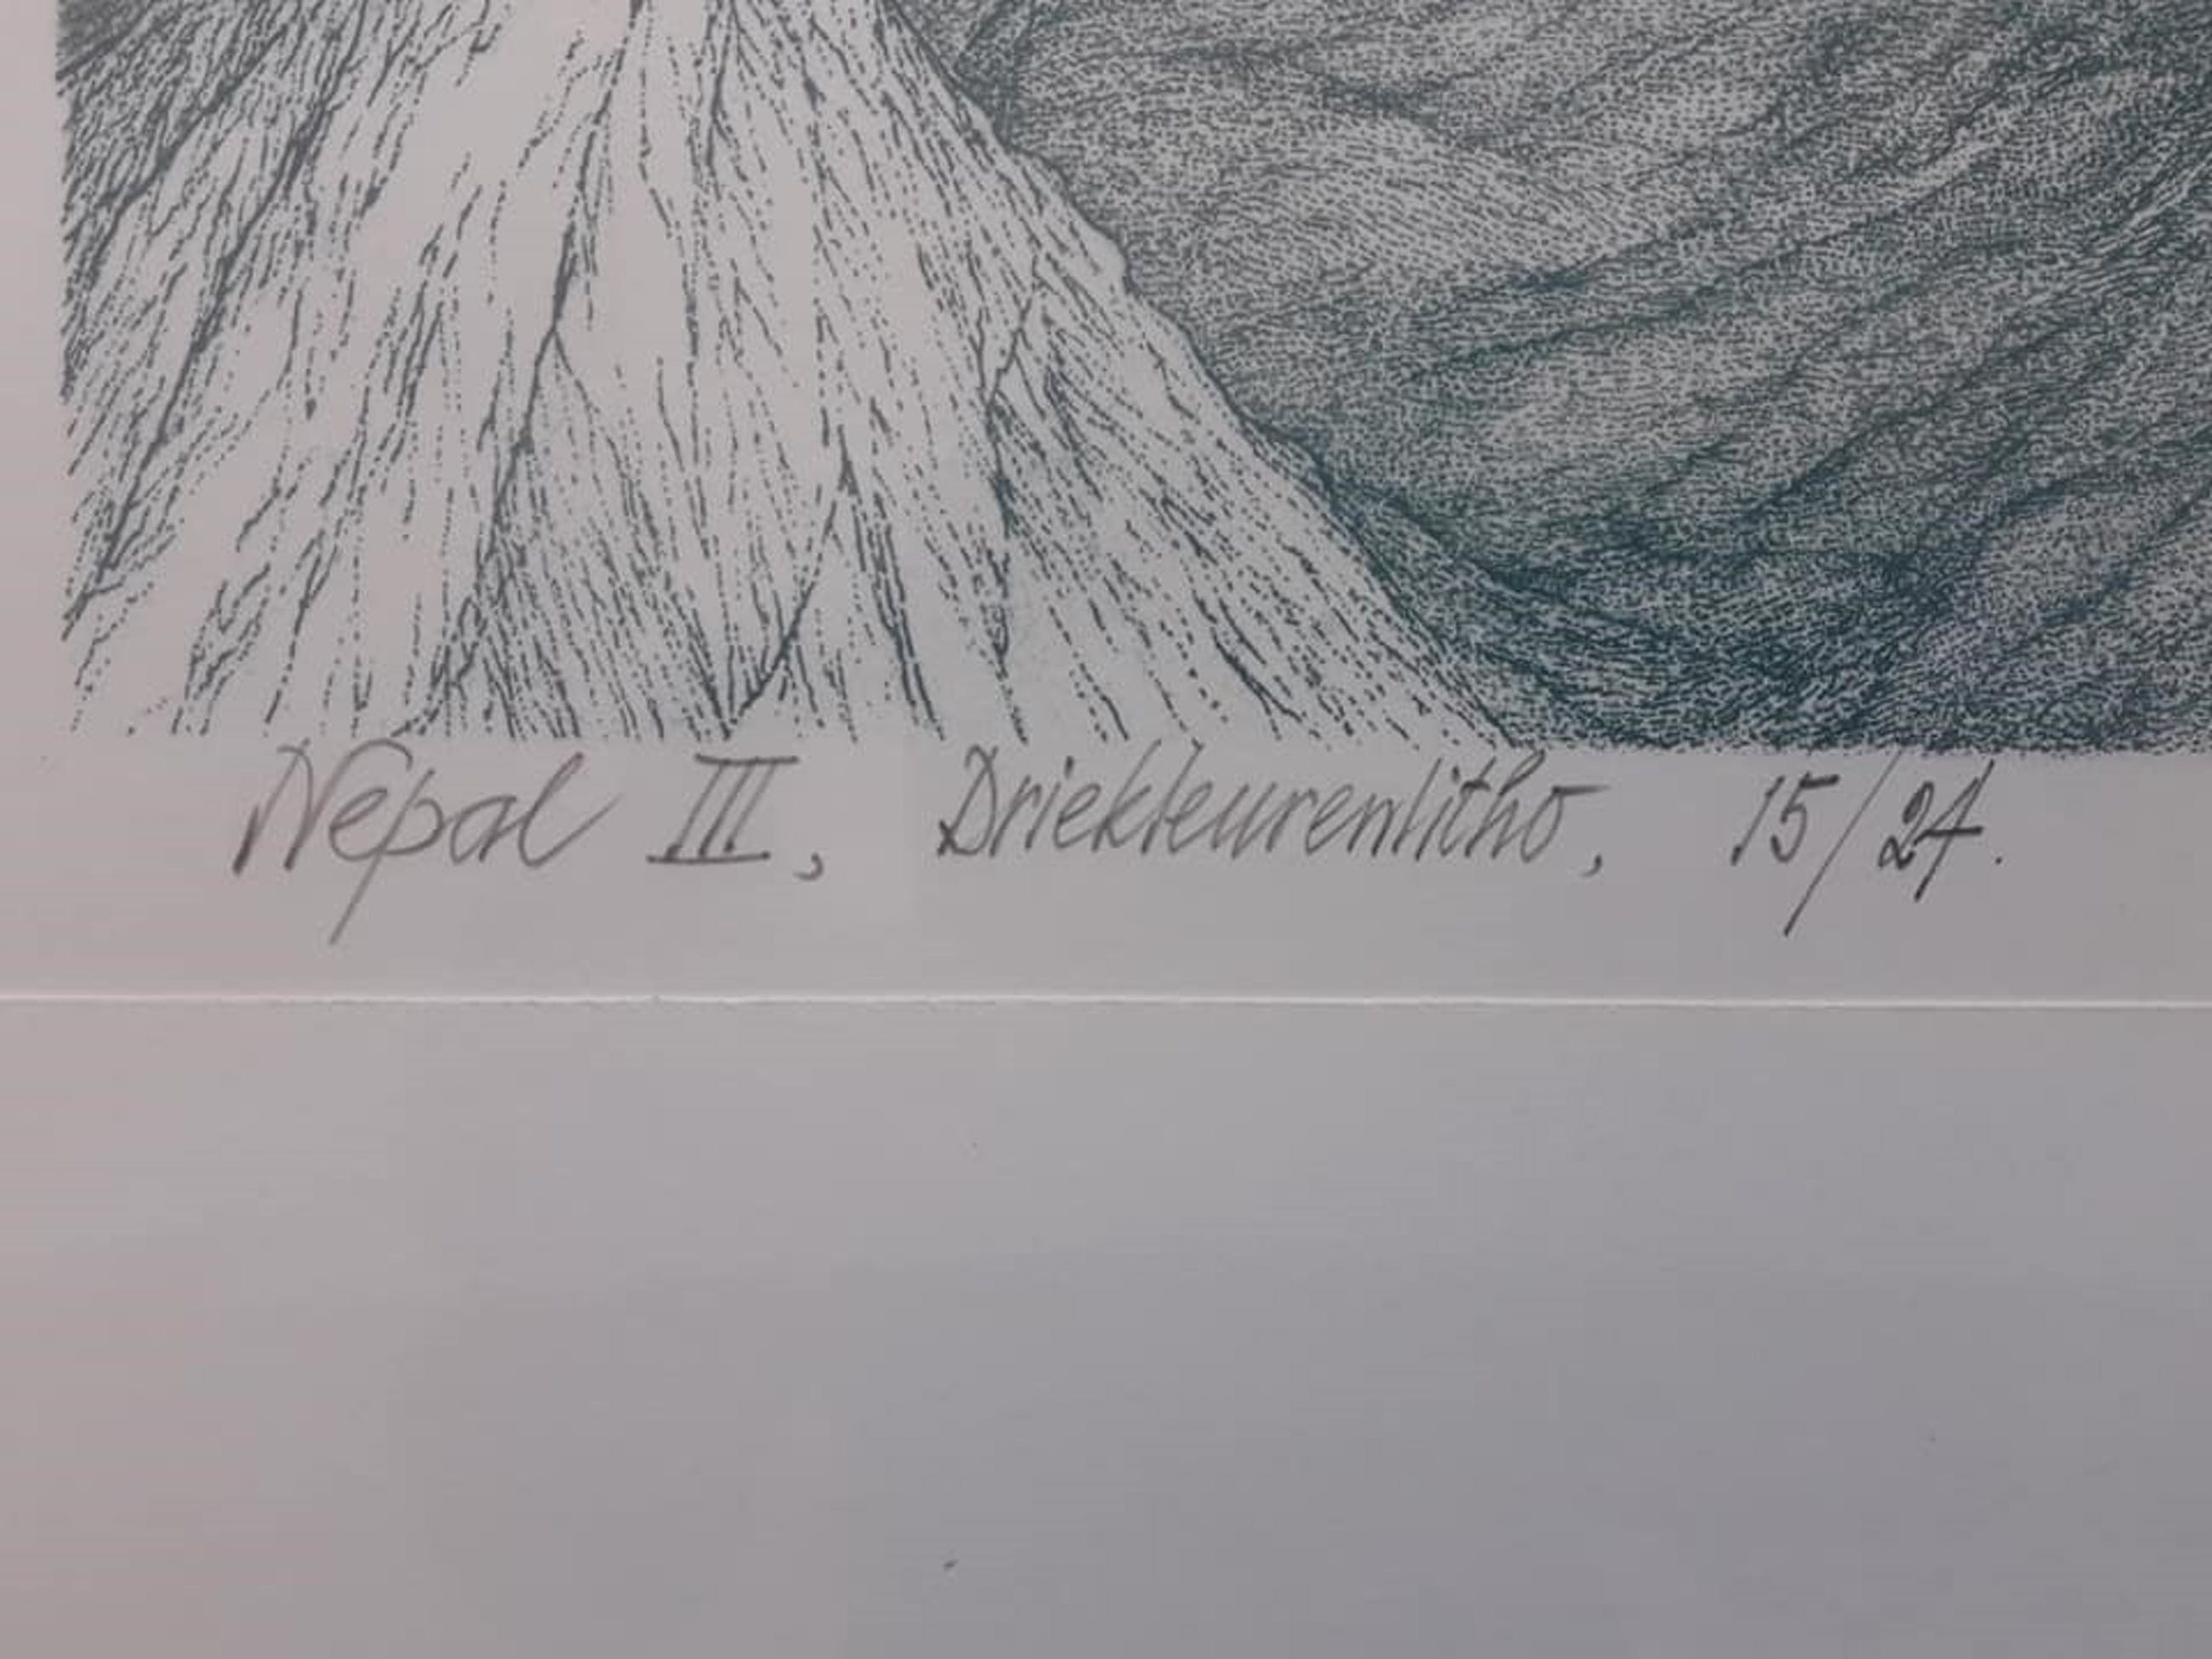 Nepal III, Driekleurenlitho, 15/24.